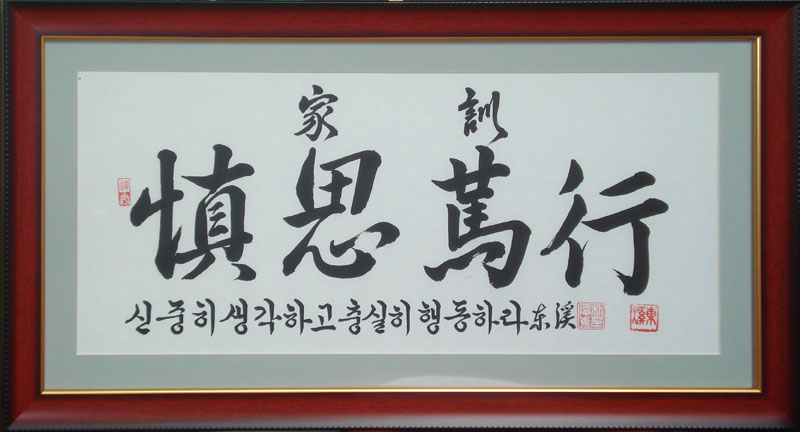 家訓
慎思篤行
신중히생각하고충실히행동하라 东溪
東溪